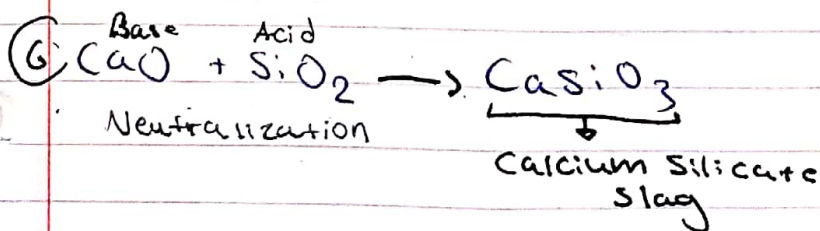 Base Acid
6: CaO + SiO2 → CaSiO3
Neutralization
Calcium Silicate
Slag